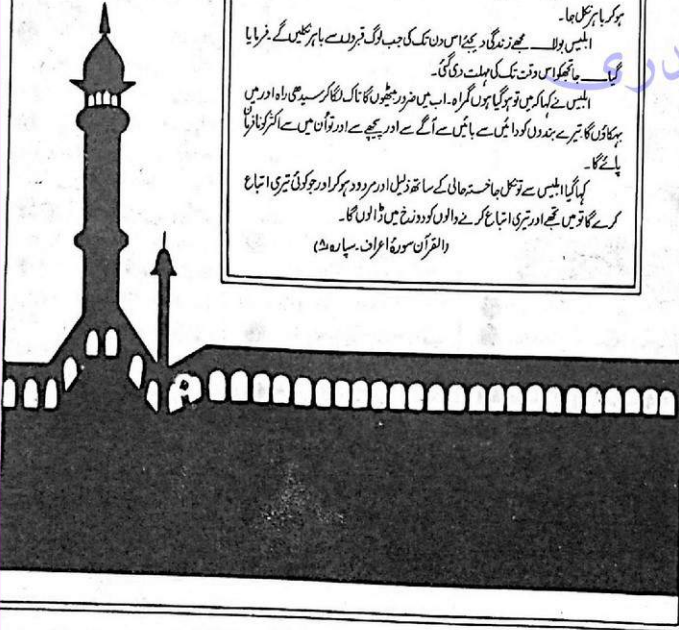 ہوکر باہر نکل جا۔
ابلیس بولا ــــ مجھے زندگی دیجئے اس دن تک کی جب لوگ قبروں سے باہر نکلیں گے۔ فرمایا
گیا ــــ جا تجھکو اس وقت تک کی مہلت دی گئی۔
ابلیس نے کہا کہ میں تو ہوگیا ہوں گمراہ۔ اب میں ضرور بیٹھوں گا تاک لگا کر سیدھی راہ اور میں
بہکاؤں گا تیرے بندوں کو دائیں سے بائیں سے آگے سے اور پیچھے سے اور تو اُن میں سے اکثر کو نافرمان
پائے گا۔
کہا گیا ابلیس سے تو نکل جا خستہ حالی کے ساتھ ذلیل اور مردود ہو کر اور جو کوئی تیری اتباع
کرے گا تو میں تجھے اور تیری اتباع کرنے والوں کو دوزخ میں ڈالوں گا۔
(القرآن سورۂ اعراف۔ سپارہ ۸)